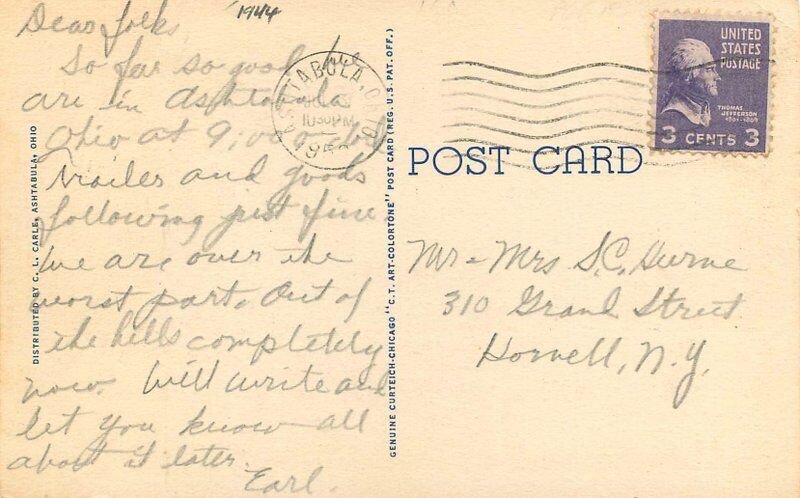 Dear folks,
1944
So far so good we
are in Ashtabula
Ohio at 9,000 
Trailer and goods
following just fine
We are over the
worst part. Out of
the hills completely
now. Will write and
let you know all
about it later.
Earl.
DISTRIBUTED BY C. L. CARLE, ASHTABULA, OHIO
GENUINE CURTEICH-CHICAGO "C.T. ART-COLORTONE" POST CARD (REG. U.S. PAT. OFF.)
ASHTABULA, OHIO
1030PM
POST CARD
UNITED
STATES
POSTAGE
THOMAS
JEFFERSON
1801-1809
3 CENTS 3
Mr - Mrs S.C.
310 Grand Street
Hornell, N.Y.